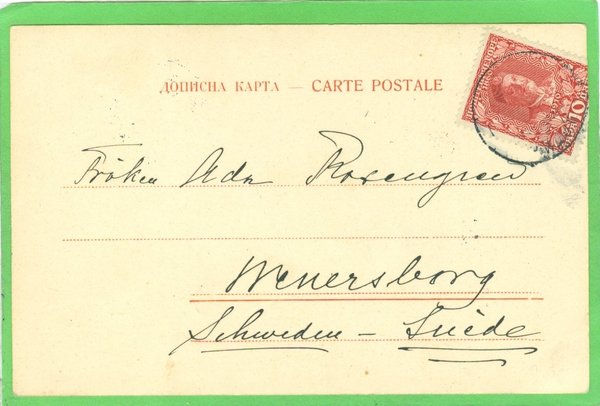 ДОПИСНА КАРТА — CARTE POSTALE
10
Fröken Ada Rosengren
Wenersborg
Schweden – Suède